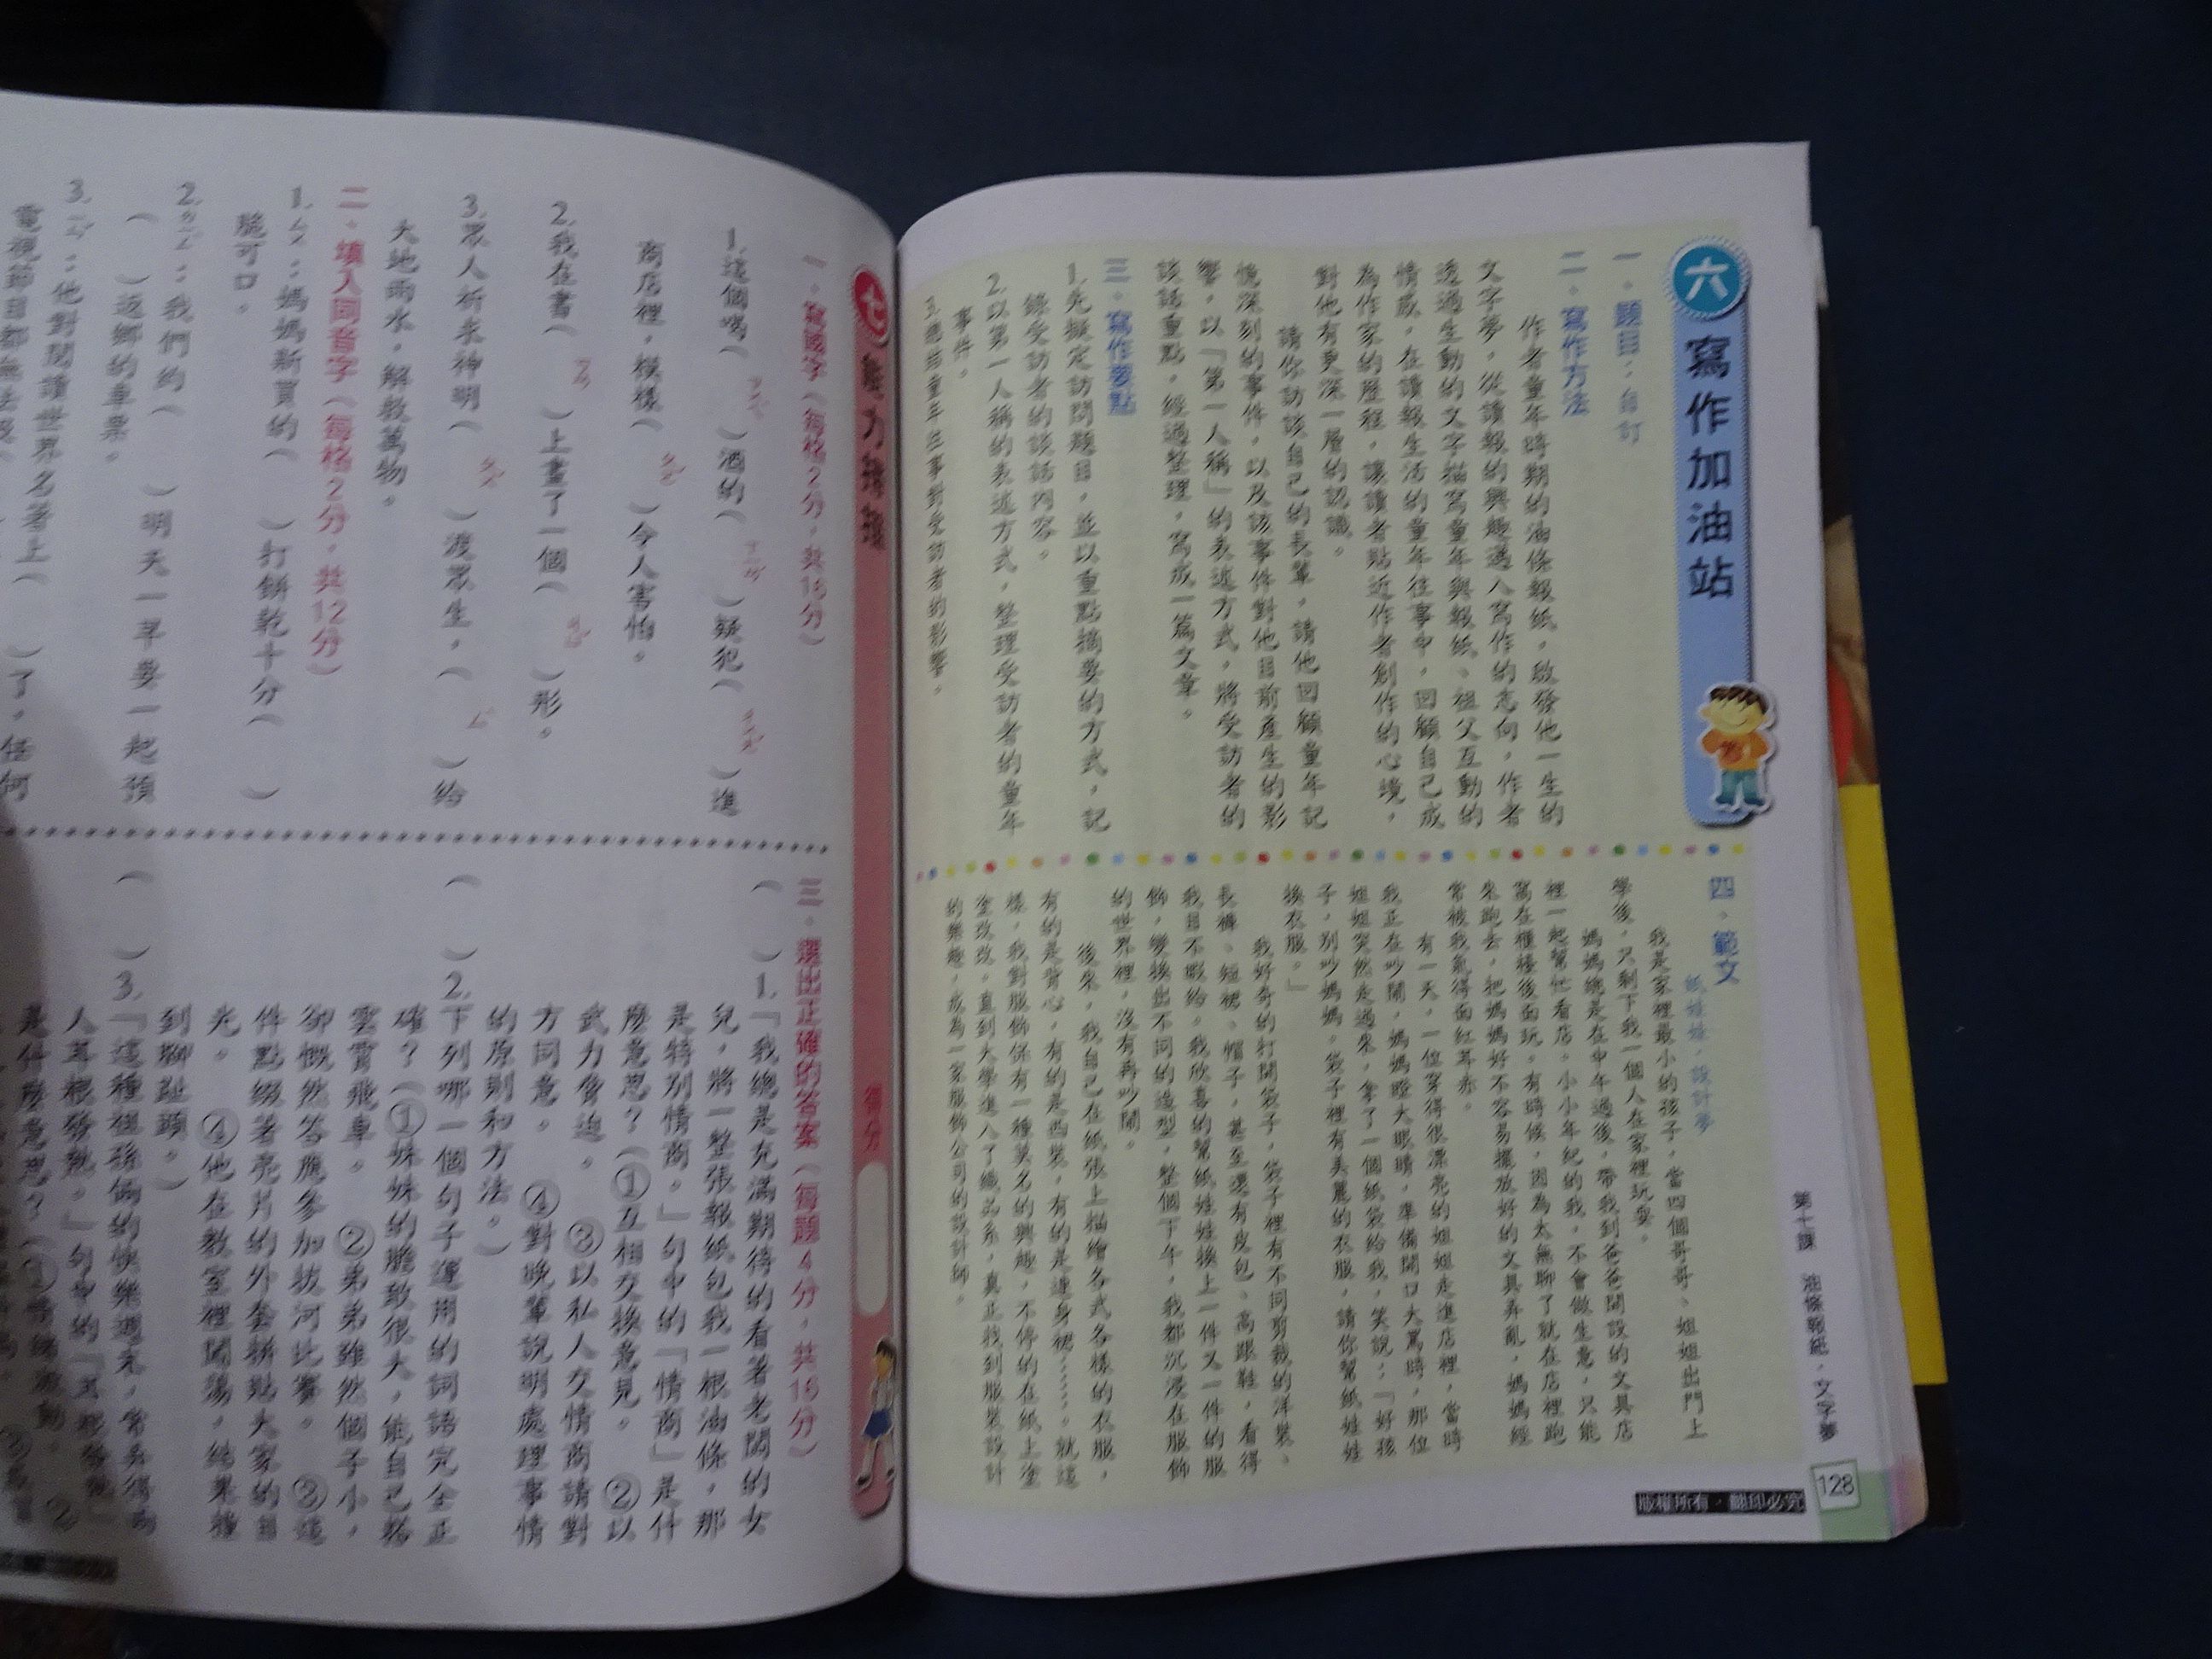 六 寫作加油站
一、題目：自訂
二、寫作方法
作者童年時期的油條報紙，啟發他一生的
文字夢，從讀報的興趣邁入寫作的志向，作者
透過生動的文字描寫童年與報紙、祖父互動的
情感，在讀報生活的童年往事中，回顧自己成
為作家的歷程，讓讀者貼近作者創作的心境，
對他有更深一層的認識。
請你訪談自己的長輩，請他回顧童年記
憶深刻的事件，以及該事件對他目前產生的影
響，以「第一人稱」的表述方式，將受訪者的
談話重點，經過整理，寫成一篇文章。
三、寫作要點
1.先擬定訪問題目，並以重點摘要的方式，記
錄受訪者的談話內容。
2.以第一人稱的表述方式，整理受訪者的童年
事件。
3.總結童年往事對受訪者的影響。
四、範文
紙娃娃，設計夢
我是家裡最小的孩子，當四個哥哥、姐姐出門上
學後，只剩下我一個人在家裡玩耍。
媽媽總是在中午過後，帶我到爸爸開設的文具店
裡一起幫忙看店。小小年紀的我，不會做生意，只能
窩在櫃檯後面玩。有時候，因為太無聊了就在店裡跑
來跑去，把媽媽好不容易擺放好的文具弄亂，媽媽經
常被我氣得面紅耳赤。
有一天，一位穿得很漂亮的姐姐走進店裡，當時
我正在吵鬧，媽媽瞪大眼睛，準備開口大罵時，那位
姐姐突然走過來，拿了一個紙袋給我，笑說：「好孩
子，別吵媽媽。袋子裡有美麗的衣服，請你幫紙娃娃
換衣服。」
我好奇的打開袋子，袋子裡有不同剪裁的洋裝、
長褲、短裙、帽子，甚至還有皮包、高跟鞋，看得
我目不暇給。我欣喜的幫紙娃娃換上一件又一件的服
飾，變換出不同的造型，整個下午，我都沉浸在服飾
的世界裡，沒有再吵鬧。
後來，我自己在紙張上描繪各式各樣的衣服，
有的是背心，有的是西裝，有的是連身裙……。就這
樣，我對服飾保有一種莫名的興趣，不停的在紙上塗
塗改改，直到大學進入了織品系，真正找到服裝設計
的樂趣，成為一家服飾公司的設計師。
第十課 油條報紙・文字夢
128
版權所有・翻印必究
七 能力
得分
一、寫國字（每格2分，共16分）
1.這個喝（ ）酒的（ ）疑犯（ ）進
商店裡，模樣（ ）令人害怕。
2.我在書（ ）上畫了一個（ ）形。
3.眾人祈求神明（ ）渡眾生，（ ）給
大地雨水，解救萬物。
二、填入同音字（每格2分，共12分）
1.ㄙㄨ：媽媽新買的（ ）打餅乾十分（ ）
脆可口。
2. ：我們約（ ）明天一早要一起預
（ ）返鄉的車票。
3. ：他對閱讀世界名著上（ ）了，任何
電視節目都無法
三、選出正確的答案（每題4分，共16分）
（ ）1.「我總是充滿期待的看著老闆的女
兒，將一整張報紙包我一根油條，那
是特別情商。」句中的「情商」是什
麼意思？（①互相交換意見。 ②以
武力脅迫。 ③以私人交情商請對
方同意。 ④對晚輩說明處理事情
的原則和方法。）
（ ）2.下列哪一個句子運用的詞語完全正
確？（①妹妹的膽敢很大，能自己搭
雲霄飛車。 ②弟弟雖然個子小，
卻慨然答應參加拔河比賽。 ③這
件點綴著亮片的外套掰點大家的目
光。 ④他在教室裡闖蕩，結果撞
到腳趾頭。）
（ ）3.「這種祖孫倆的快樂週末，常弄得兩
人耳根發熱。」句中的「耳根發熱」
是什麼意思？